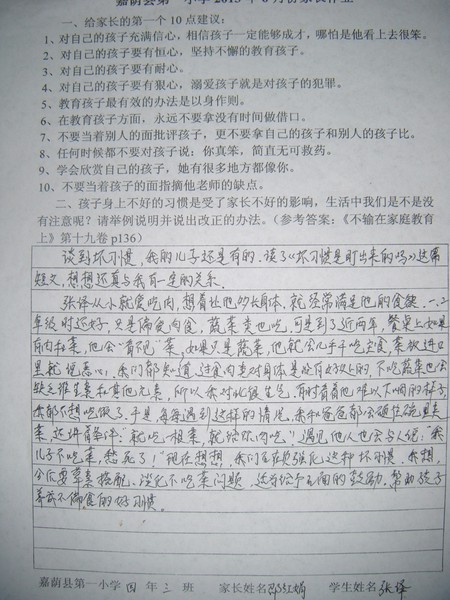 嘉荫县第一小学2013年6月份家长作业
一、给家长的第一个10点建议：
1、对自己的孩子充满信心，相信孩子一定能够成才，哪怕是他看上去很笨。
2、对自己的孩子要有恒心，坚持不懈的教育孩子。
3、对自己的孩子要有耐心。
4、对自己的孩子要有狠心，溺爱孩子就是对孩子的犯罪。
5、教育孩子最有效的办法是以身作则。
6、在教育孩子方面，永远不要拿没有时间做借口。
7、不要当着别人的面批评孩子，更不要拿自己的孩子和别人的孩子比。
8、任何时候都不要对孩子说：你真笨，简直无可救药。
9、学会欣赏自己的孩子，她有很多地方都像你。
10、不要当着孩子的面指摘他老师的缺点。
二、孩子身上不好的习惯是受了家长不好的影响，生活中我们是不是没
有注意呢？请举例说明并说出改正的办法。（参考答案：《不输在家庭教育
上》第十九卷 p136）
谈到坏习惯，我的儿子还是有的。读了《坏习惯是盯出来的吗》这篇
短文，想想还真与我有一定的关系。
张译从小就爱吃肉，想着让他多长身体，就经常满足他的食欲。一、二
年级时还好，只是偏爱肉食，蔬菜类也吃，可是到了近两年，餐桌上如果
有肉和菜，他会“看不见”菜，如果只是蔬菜，他就会几乎干吃主食，菜放进口
里就说恶心。我们都知道，过食肉类对身体是没有好处的，不吃蔬菜也会
缺乏维生素和其他元素，所以我对此很生气，有时看着他难以下咽的样子，
我都不想吃饭了。于是，每每遇到这样的情况，我和爸爸都会硬往碗里夹
菜，还讲条件：“就吃一根菜，就给你肉吃。”遇见他人也会与人说：“我
儿子不吃菜，愁死了！”现在想想，我们是在强化这种坏习惯。我想，
今后要荤素搭配，淡化不吃菜问题，还有给予正面的鼓励，帮助孩子
养成不偏食的好习惯。
嘉荫县第一小学 四 年 三 班 家长姓名 邵红娟 学生姓名 张译